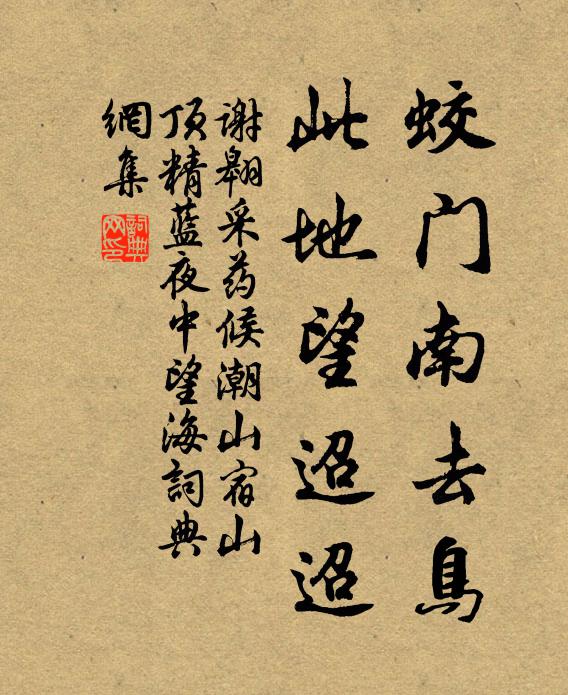 蛟门南去鳥
此地望迢迢
谢翱采药候潮山宿山
顶精蓝夜中望海詞典
網集
詞典
网印